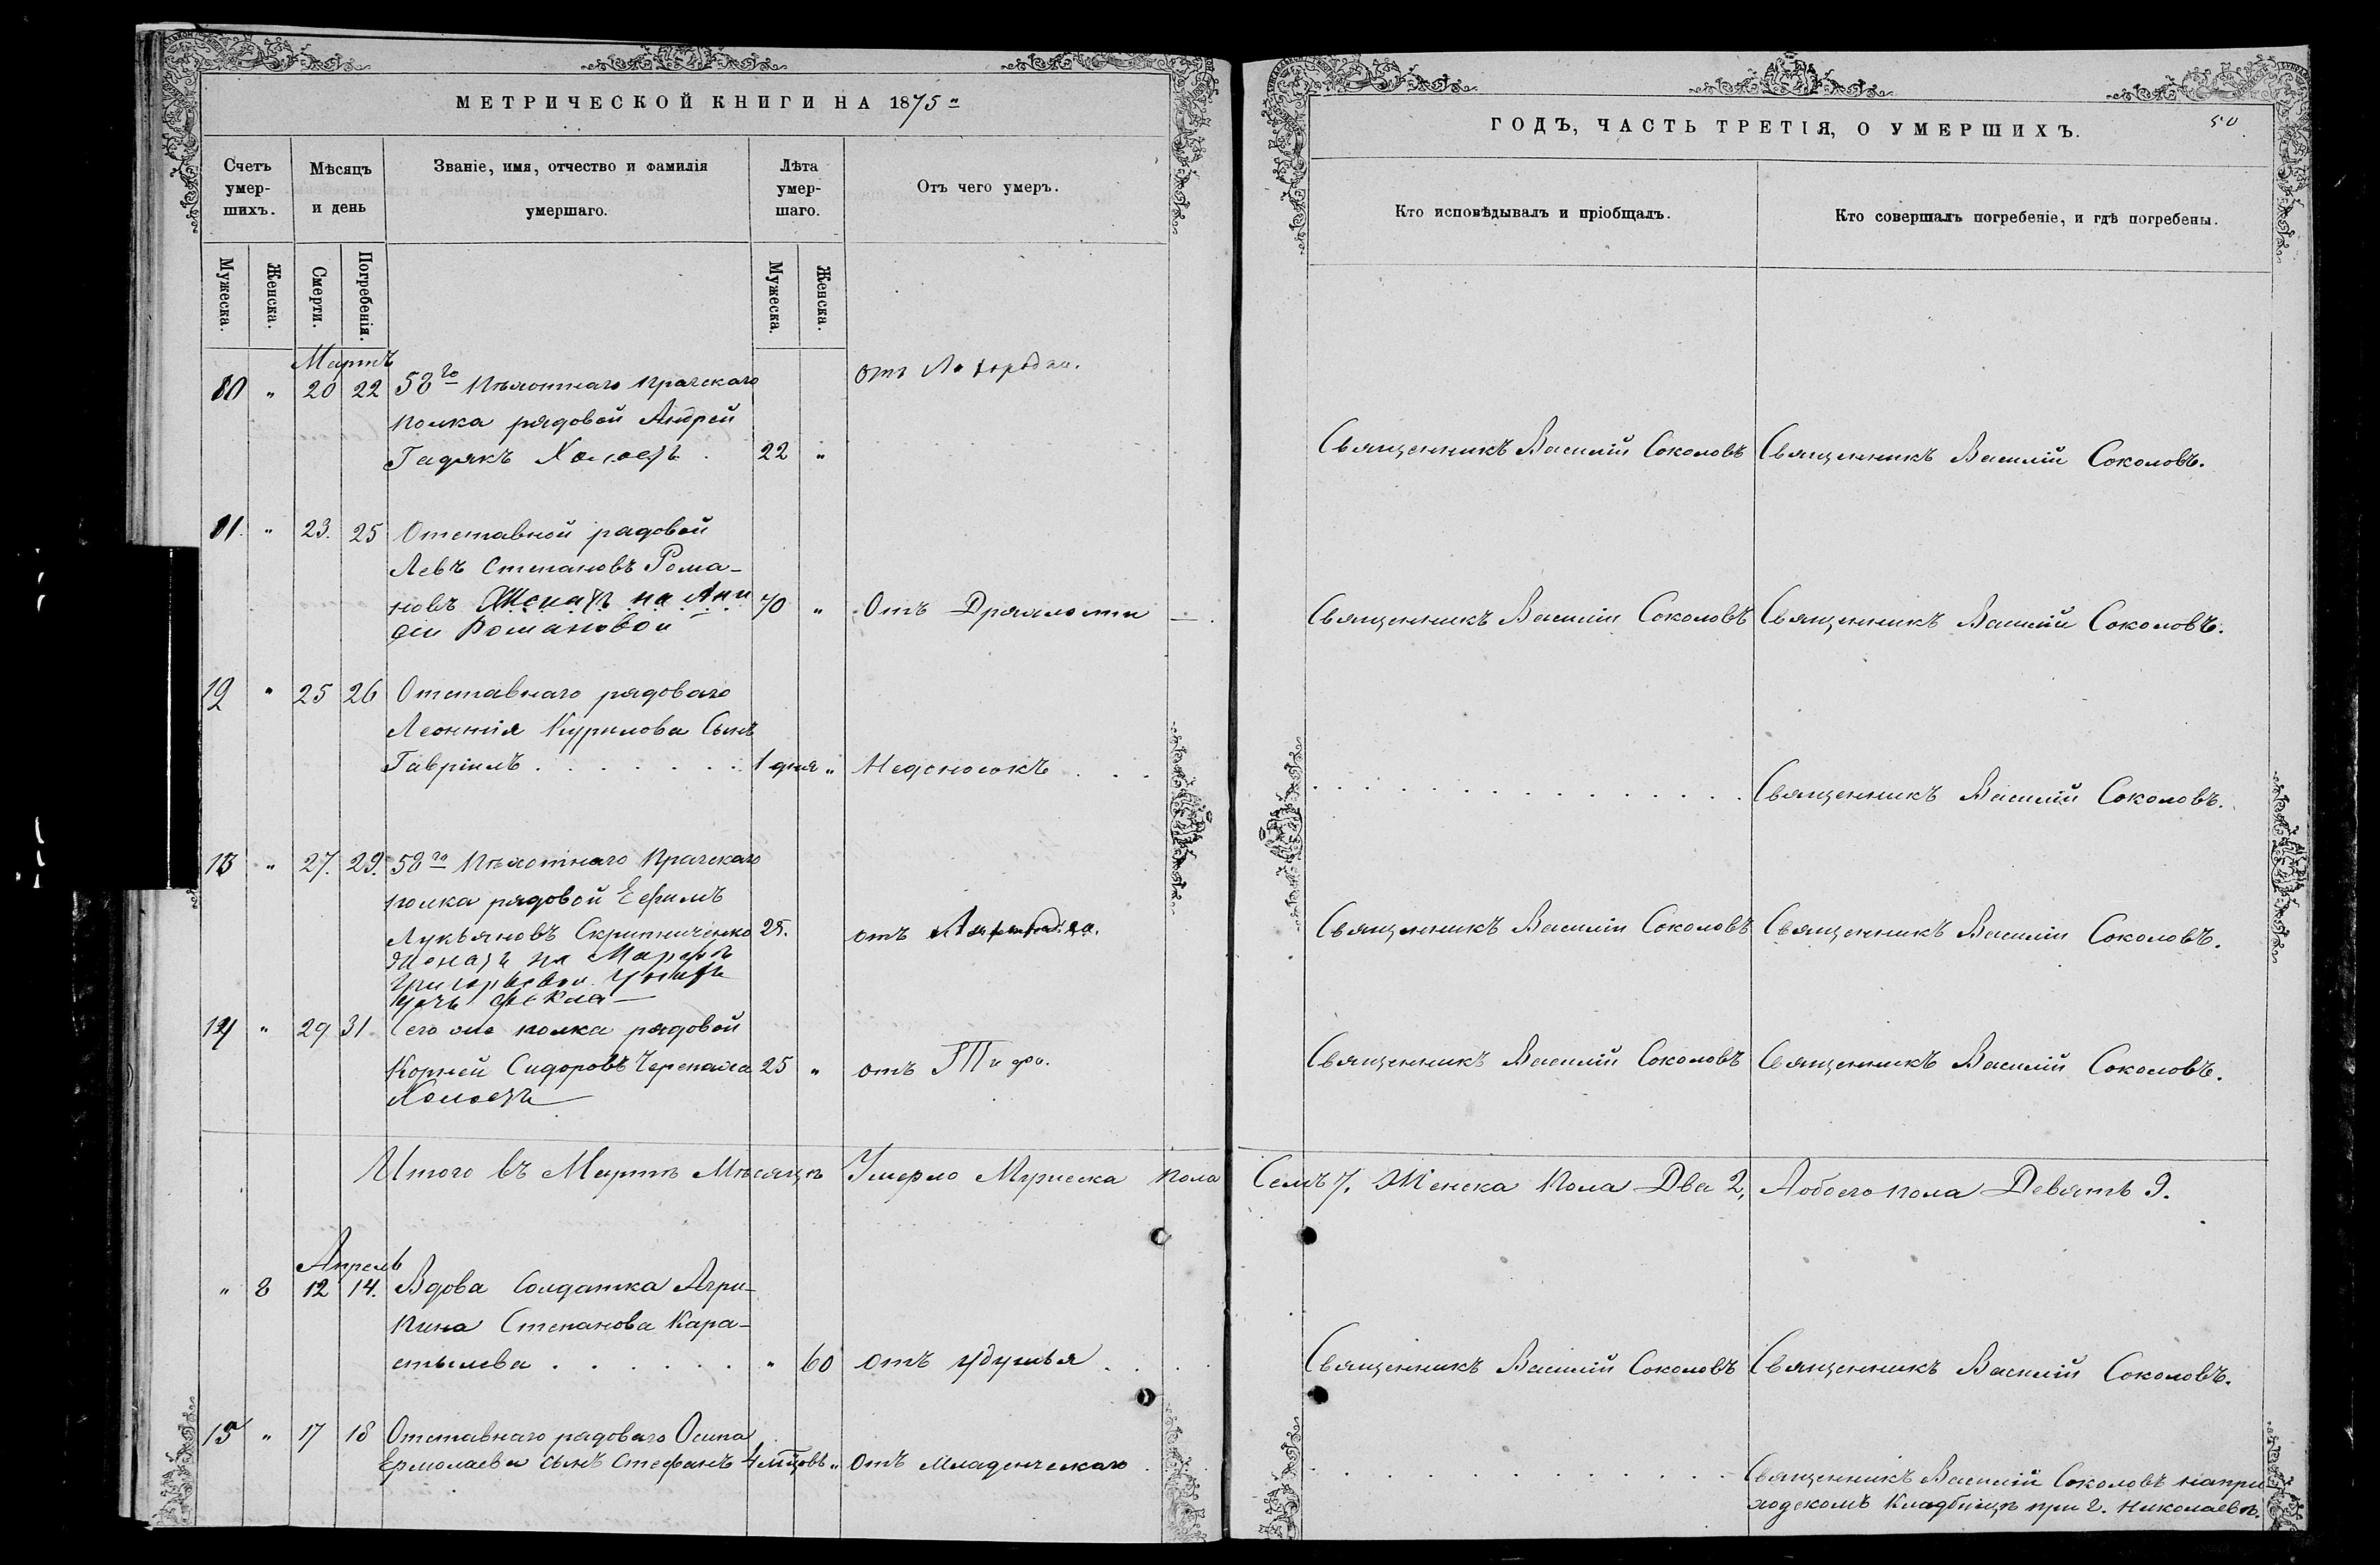 МЕТРИЧЕСКОЙ КНИГИ НА 1875 „
Счетъ умер-шихъ.
Мѣсяцъ и день
Званіе, имя, отчество и фамилія умершаго.
Лѣта умер-шаго.
Отъ чего умеръ.
Мужеска.
Женска.
Смерти.
Погребенія.
Мужеска.
Женска.
ГОДЪ, ЧАСТЬ ТРЕТІЯ, О УМЕРШИХЪ.
50
Кто исповѣдывалъ и пріобщалъ.
Кто совершалъ погребеніе, и гдѣ погребены.
Мартъ
10 „ 20 22 58го Пѣхотнаго Прагскаго
полка рядовой Андрей
Гадякъ Холостъ. 22 „
отъ
Священникъ Василій Соколовъ
Священникъ Василій Соколовъ.
11. „ 23. 25 Отставной рядовой
Левъ Степановъ Рома-
новъ Женатъ на 70 „ Отъ Дряхлости
Романовой
Священникъ Василій Соколовъ
Священникъ Василій Соколовъ.
12 „ 25 26 Отставнаго рядоваго
Леонтія Курилова Сынъ
Гавріилъ . . . . . . . 1 дня „ Недоносокъ . . .
Священникъ Василій Соколовъ.
13 „ 27. 29. 58го Пѣхотнаго Прагскаго
полка рядовой Ефимъ
Лукьяновъ Скрипниченко 25. отъ
женатъ на Марѳѣ
Григорьевой У нихъ
дочь Ѳекла
Священникъ Василій Соколовъ
Священникъ Василій Соколовъ.
14 „ 29 31 Сего же полка рядовой
Корней Сидоровъ Черепаха 25 „ отъ Тифа.
Холостъ
Священникъ Василій Соколовъ
Священникъ Василій Соколовъ.
Итого въ Мартѣ Мѣсяцѣ Умерло Мужеска пола Семь 7. Женска Пола Два 2, Аобоего пола Девять 9.
Апрель
„ 8 12 14. Вдова Солдатка Агри-
пина Степанова Кара-
стылева . . . . . . „ 60 отъ удушья . . .
Священникъ Василій Соколовъ
Священникъ Василій Соколовъ.
15 „ 17 18 Отставнаго рядоваго Осипа
Ермолаева сынъ Стефанъ 4 мѣцовъ „ Отъ Младенческаго
Священникъ Василій Соколовъ напри
ходскомъ Кладбищѣ при г. Николаевѣ.